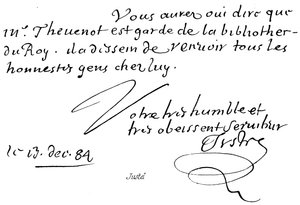 Vous aurez oui dire que
mr. Thevenot est garde de la bibliothe-
du Roy. il a dessein de reuuoir tous les
honnestes gens chez luy.
Votre tres humble et
tres obeissent seruiteur
le 13. dec. 84
Justel